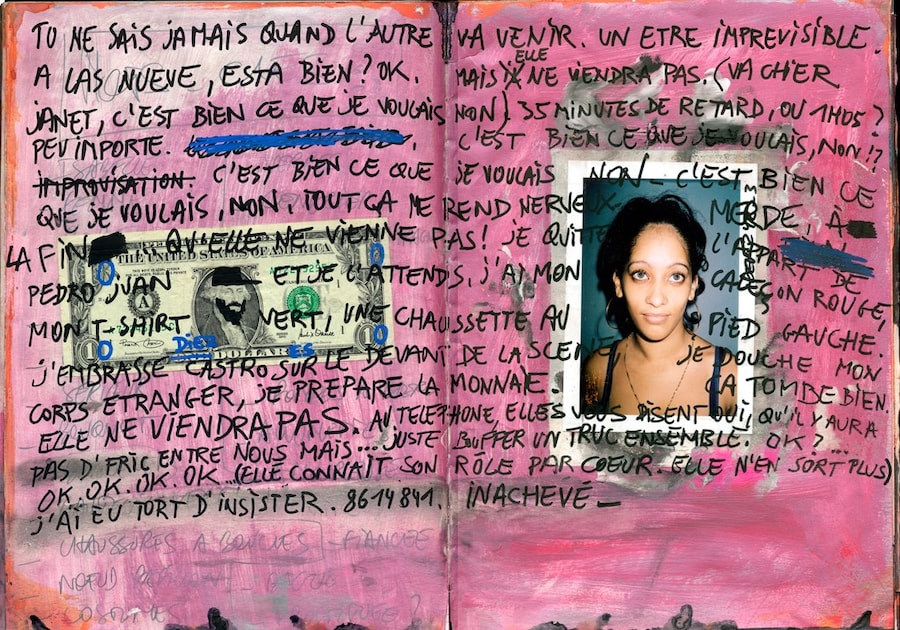 TU NE SAIS JAMAIS QUAND L'AUTRE VA VENIR. UN ETRE IMPREVISIBLE.
A LAS NUEVE, ESTA BIEN? OK. MAIS ELLE NE VIENDRA PAS. (VA CHIER
JANET, C'EST BIEN CE QUE JE VOULAIS NON) 35 MINUTES DE RETARD, OU 1H05?
PEU IMPORTE. C'EST BIEN CE QUE JE VOULAIS, NON!?
IMPROVISATION. C'EST BIEN CE QUE JE VOULAIS NON_ C'EST BIEN CE
QUE JE VOULAIS, NON. TOUT ÇA ME REND NERVEUX. MERDE, À
LA FIN QU'ELLE NE VIENNE PAS! JE QUITTE L'APPART DE
PEDRO JUAN ET JE L'ATTENDS, J'AI MON CALEÇON ROUGE,
MON T-SHIRT VERT, UNE CHAUSSETTE AU PIED GAUCHE.
J'EMBRASSE CASTRO SUR LE DEVANT DE LA SCENE, JE DOUCHE MON
CORPS ETRANGER, JE PREPARE LA MONNAIE. ÇA TOMBE BIEN.
ELLE NE VIENDRA PAS. AU TELEPHONE, ELLES VOUS DISENT OUI, QU'IL Y AURA
PAS D'FRIC ENTRE NOUS MAIS... JUSTE BUFFER UN TRUC ENSEMBLE. OK?...
OK. OK. OK. OK...(ELLE CONNAIT SON RÔLE PAR COEUR. ELLE N'EN SORT PLUS)
J'AI EU TORT D'INSISTER. 8614841. INACHEVÉ_
THE UNITED STATES OF AMERICA
A
DIEU
DOLLAR ES
1
CHAUSSURES A BOUCLES - FIANCÉE
NOEUD